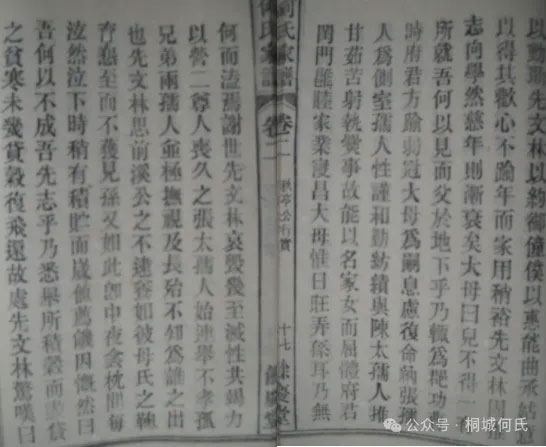 以勤勤先文林以約御僮僕以惠能曲承姑
以得其歡心不踰年而家用稍裕先文林
志向學然慈年則漸衰矣大母曰兒不得一
所就吾何以見而父於地下乎乃輒爲罷功
時府君方踰弱冠大母爲嗣息慮復命納張
人爲側室孺人性謹和勤紡績與陳太孺人推
甘茹苦躬執爨事故能以名家女而屈體府君
閨門雝睦家業寖昌大母惟日弄孫耳乃無
何氏家譜 卷二 秋亭公行實 十七 餘慶堂
何而溘焉謝世先文林哀毀幾至滅性共竭力
以營二尊人喪久之張太孺人始連舉不孝孤
兄弟兩孺人並極撫視及長殆不知爲誰之出
也先文林思前溪公之不逮養如彼母氏之鞠
育懇至而不獲見孫又如此卽中夜衾枕間每
泫然泣下時稍有積貯而歲値薦饑因慨然曰
吾何以不成吾先志乎乃悉舉所積穀而貸
之貧寒未幾貸穀復飛還故處先文林驚嘆曰
公众号·桐城何氏